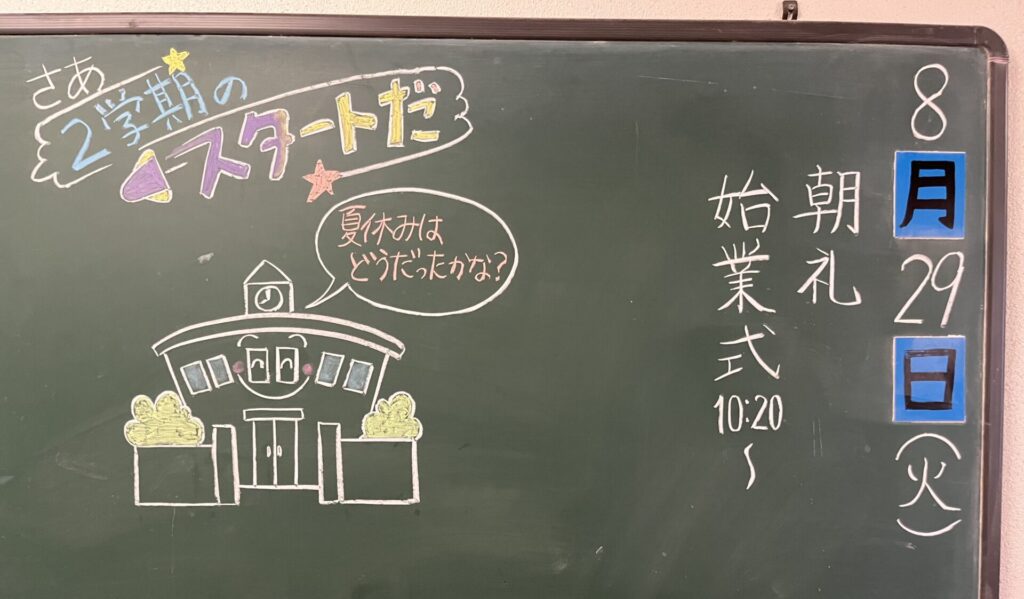 さあ
2学期の
スタートだ
夏休みは
どうだったかな?
8月29日(火)
朝礼
始業式10:20~